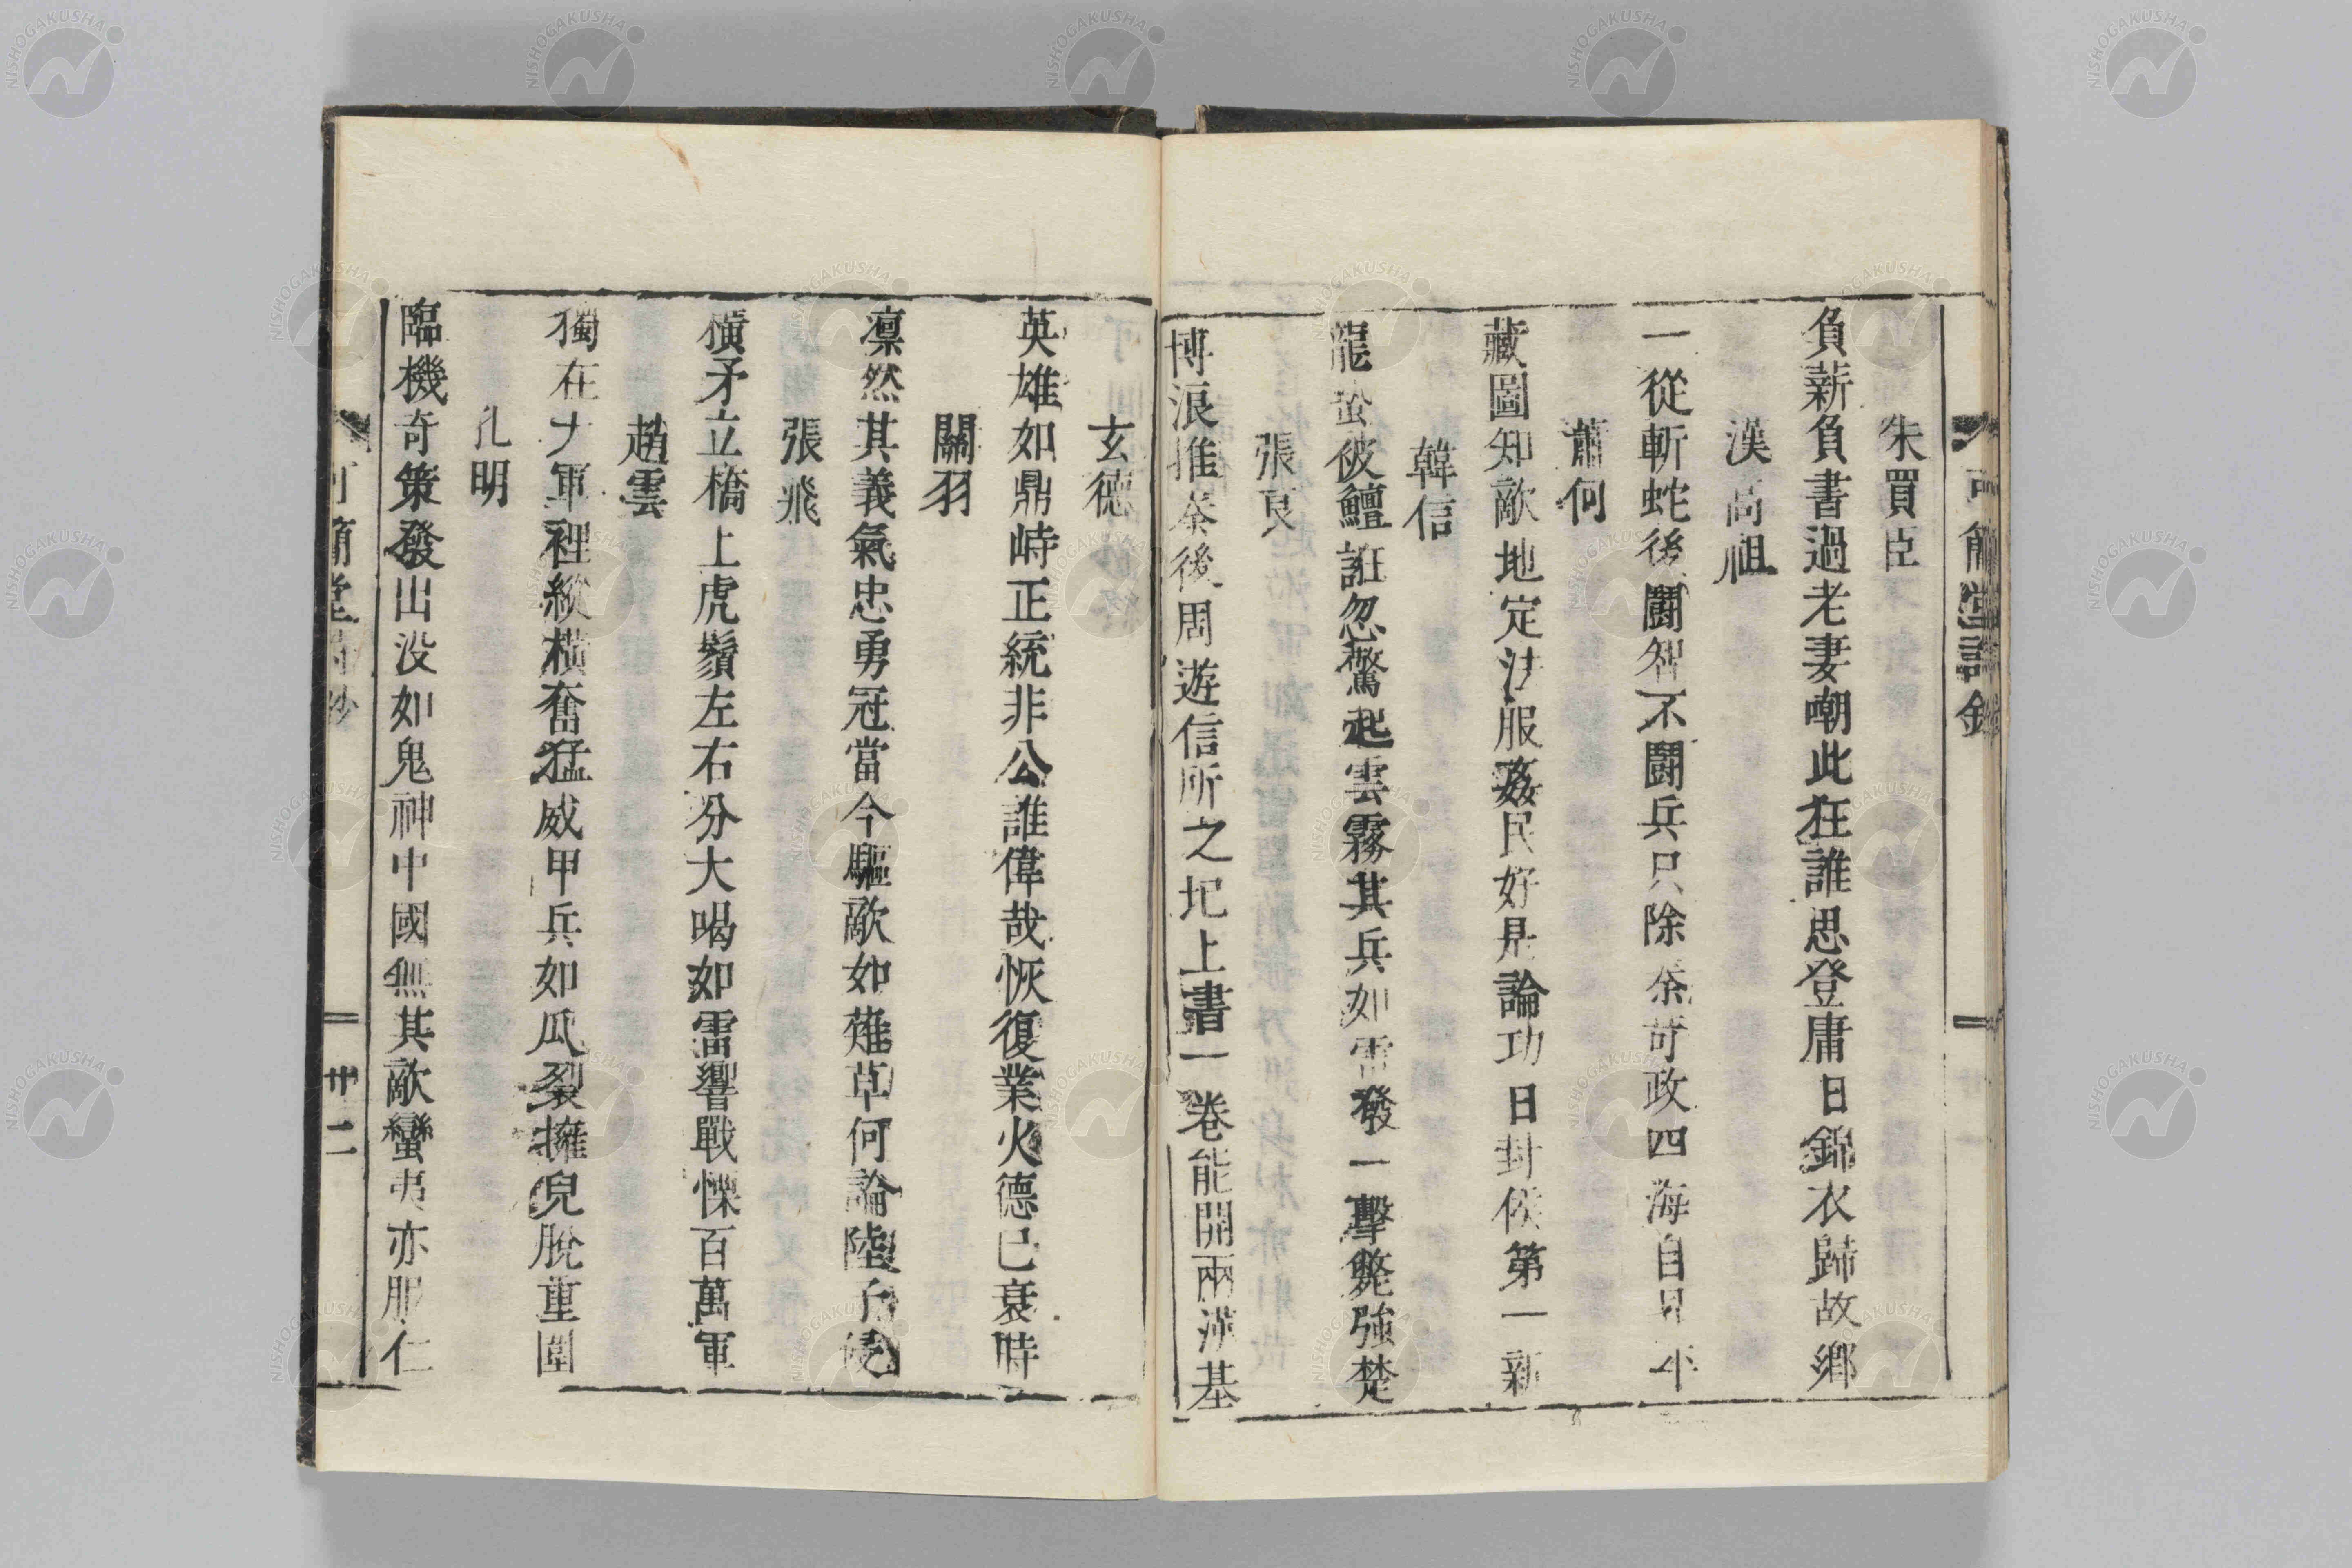 可簡堂詩鈔
朱買臣
負薪負書過老妻嘲此狂誰思登庸日錦衣歸故鄉
漢高祖
一從斬蛇後鬪智不鬪兵只除秦苛政四海自昇平
蕭何
藏圖知敵地定法服姦民好是論功日封侯第一新
韓信
龍蟄彼鱣誑忽驚起雲霧其兵如雷發一擊斃強楚
張良
博浪推秦後周遊信所之圯上書一卷能開兩漢基
玄德
英雄如鼎峙正統非公誰偉哉恢復業火德已衰時
關羽
凛然其義氣忠勇冠當今驅敵如薙草何論陸子
張飛
橫矛立橋上虎鬚左右分大喝如雷響戰慄百萬軍
趙雲
獨在大軍裡縱橫奮猛威甲兵如瓜裂擁兒脫重圍
孔明
臨機奇策發出没如鬼神中國無其敵蠻夷亦服仁
可簡堂詩鈔
卅二
NISHOGAKUSHA